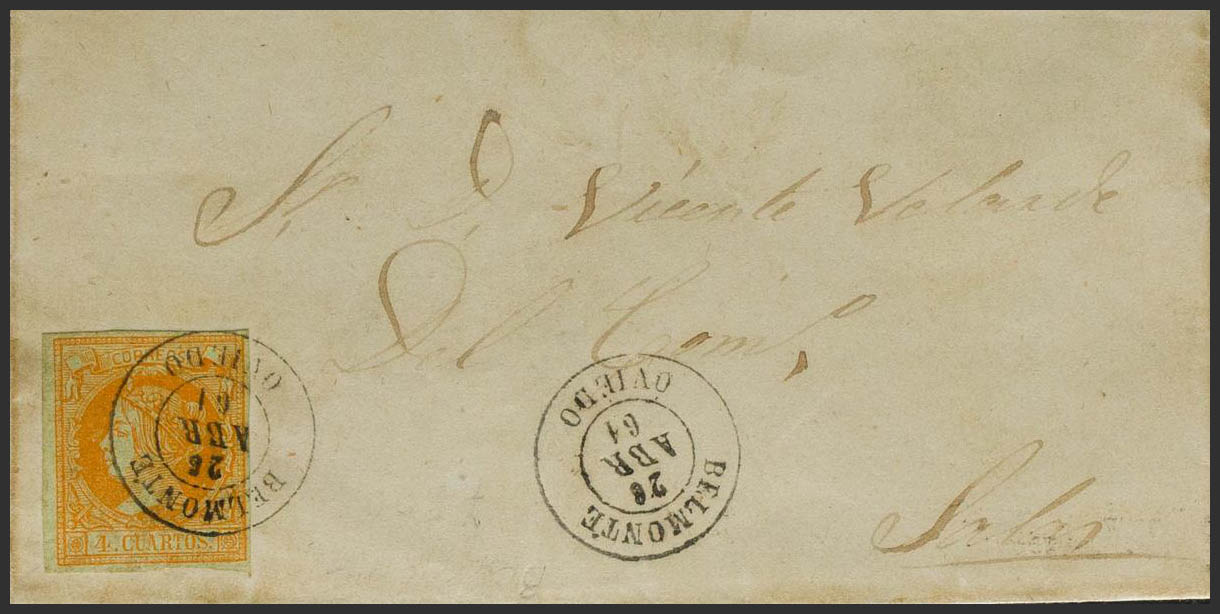 Sr. D. Vicente Velarde
Del Comº
CORREOS
4 CUARTOS.
BELMONTE
26
ABR
61
OVIEDO
BELMONTE
26
ABR
61
OVIEDO